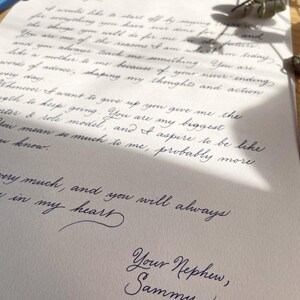 I would like to start off by saying
for everything you have ever
things you will do for
are one of the reasons I am
and you always have me something. You are
mother to me because of your never ending
words of advice, shaping my thoughts and action
every day.
Whenever I want to give up you give me the
strength to keep going. You are my biggest
& role model, and I aspire to be like
You mean so much to me, probably more
you know.
very much, and you will always
in my heart
Your Nephew,
Sammy